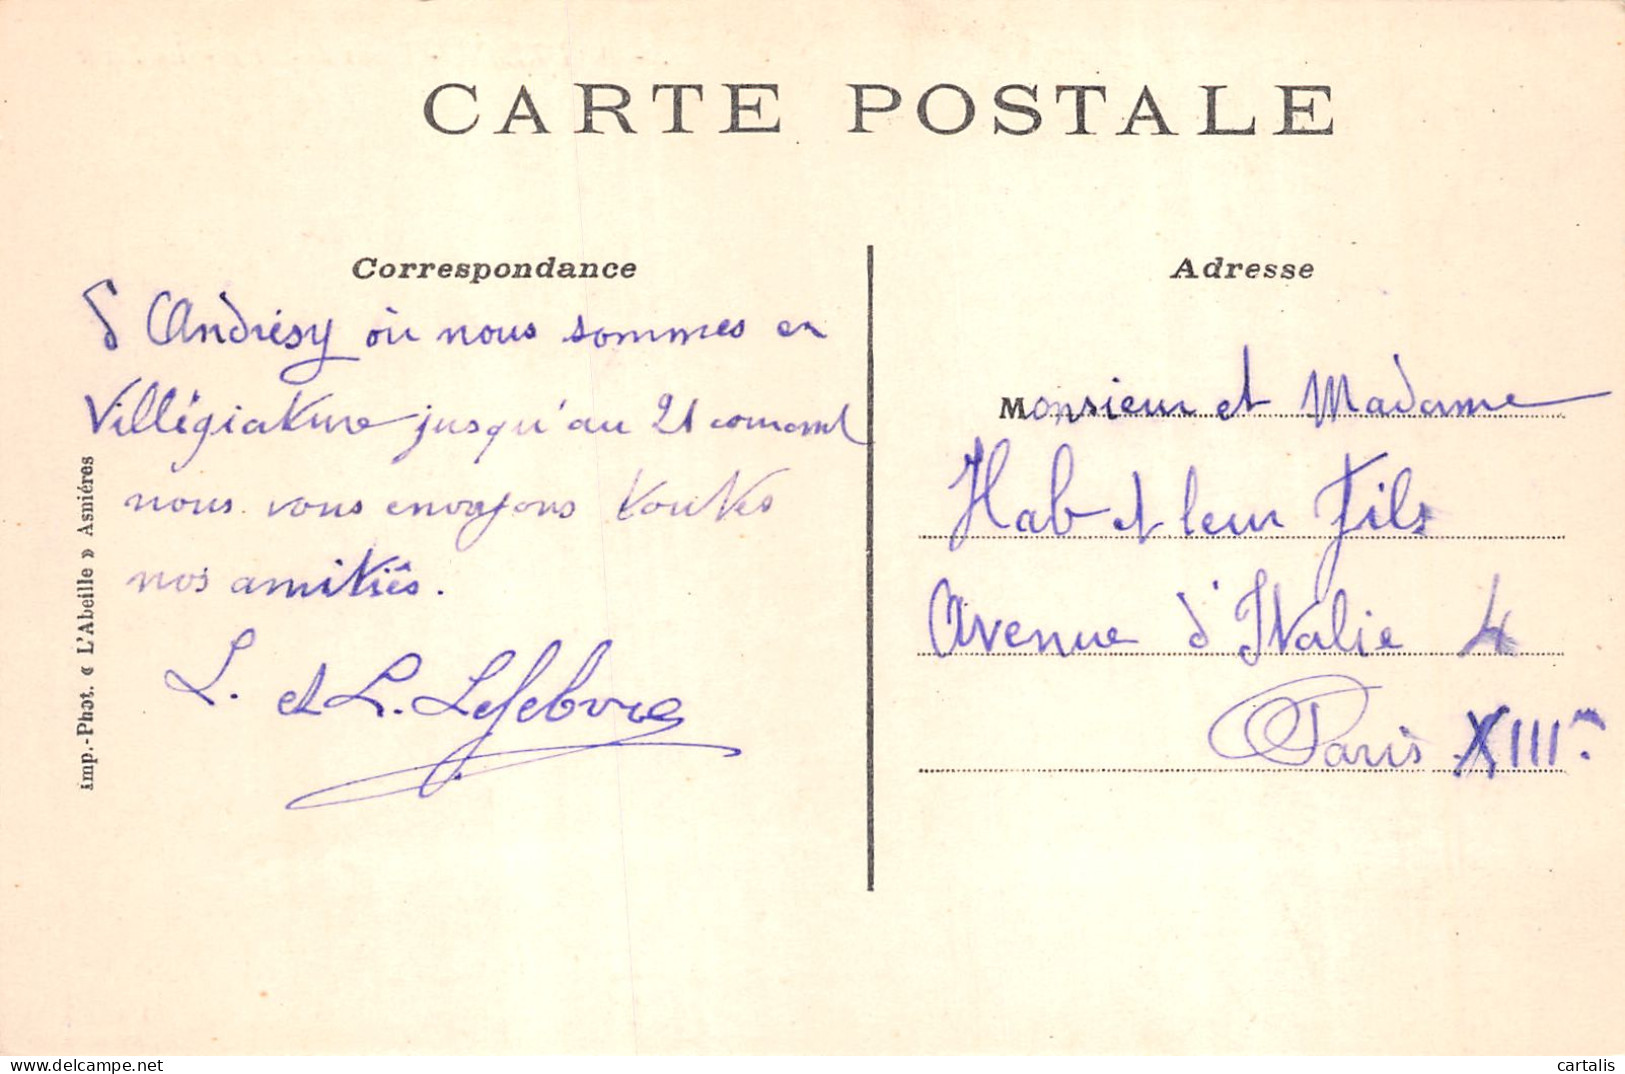 CARTE POSTALE
Correspondance
D'Andrésy où nous sommes en
Villégiature jusqu'au 21 courant
nous vous envoyons toutes
nos amitiés.
L. et L. Lefebvre
imp.-Phot. « L'Abeille » Asniéres
Adresse
Monsieur et Madame
Hab et leur Fils
Avenue d'Italie 4
Paris XIIIe
delcampe.net
cartalis